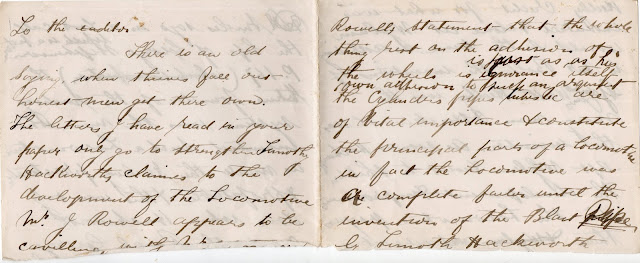 To the eaditor
There is an old
saying when thieves fall out
honest men get there own.
The letters I have read in your
paper only go to strengthen Timothy
Hackworths claimes to the
development of the Locomotive
Mr J. Rowell appears to be
cavilling
Rowells statement that the whole
thing rest on the adhesion of
the wheels is ignorance itself
is just as as his
own adhesion to such an argument
the Cylinders pipes are
of Vital importance & constitute
the principal parts of a locomotive
in fact the Locomotive was
a complete failer until the
invention of the Blast Pipe
by Timothy Hackworth